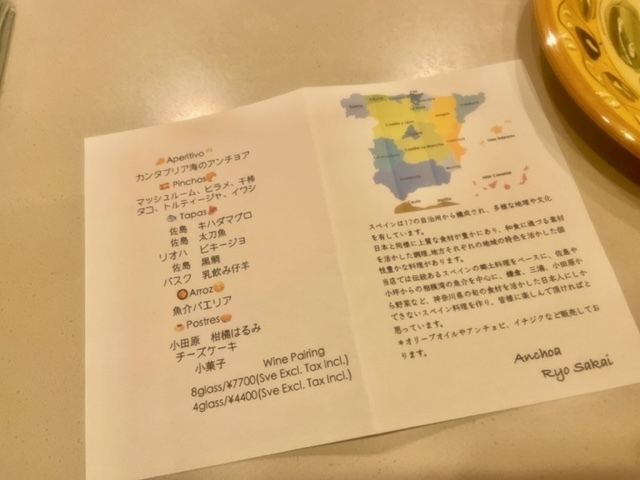 Aperitivo
カンタブリア海のアンチョア
Pinchos
マッシュルーム、ヒラメ、干棒
タコ、トルティージャ、イワシ
Tapas
佐島 キハダマグロ
佐島 太刀魚
リオハ ピキージョ
佐島 黒鯛
バスク 乳飲み仔羊
Arroz
魚介パエリア
Postres
小田原 柑橘はるみ
チーズケーキ
小菓子
Wine Pairing
8glass/¥7700(Sve Excl. Tax Incl.)
4glass/¥4400(Sve Excl. Tax Incl.)
スペインは17の自治州から構成され、多様な地理や文化
を有しています。
日本と同様に上質な食材が豊かにあり、和食に通づる素材
を活かした調理、地方それぞれの地域の特色を活かした個
性豊かな料理があります。
当店では伝統あるスペインの郷土料理をベースに、佐島や
小坪からの相模湾の魚介を中心に、鎌倉、三浦、小田原か
ら野菜など、神奈川県の旬の食材を活かした日本人にしか
できないスペイン料理を作り、皆様に楽しんで頂ければと
思っています。
*オリーブオイルやアンチョビ、イチジクなど販売してお
ります。
Anchoa
Ryo Sakai